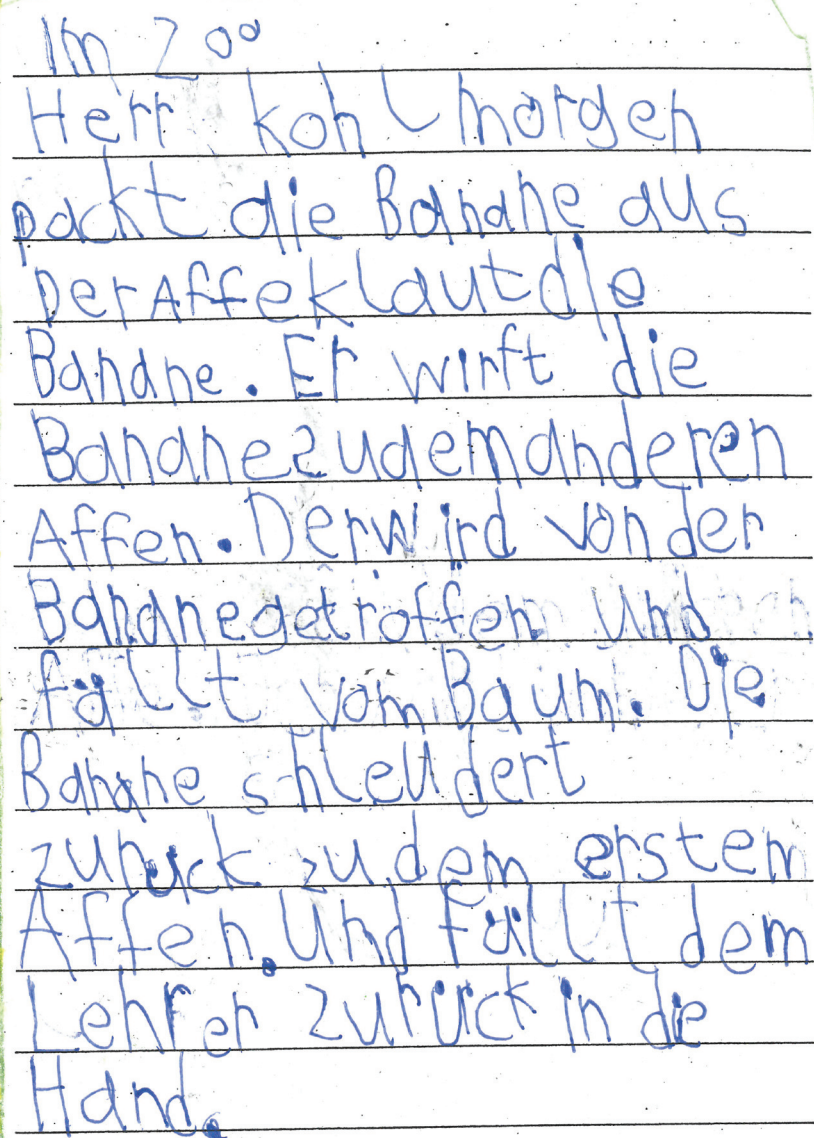 Im Zoo
Herr kohl morgen
packt die Banane aus
Der Affe klaut die
Banane. Er wirft die
Banane zu dem anderen
Affen. Der wird von der
Banane getroffen und
fällt vom Baum. Die
Banane shleudert
zurück zu dem erstem
Affen. Und fällt dem
Lehrer zurück in die
Hand.